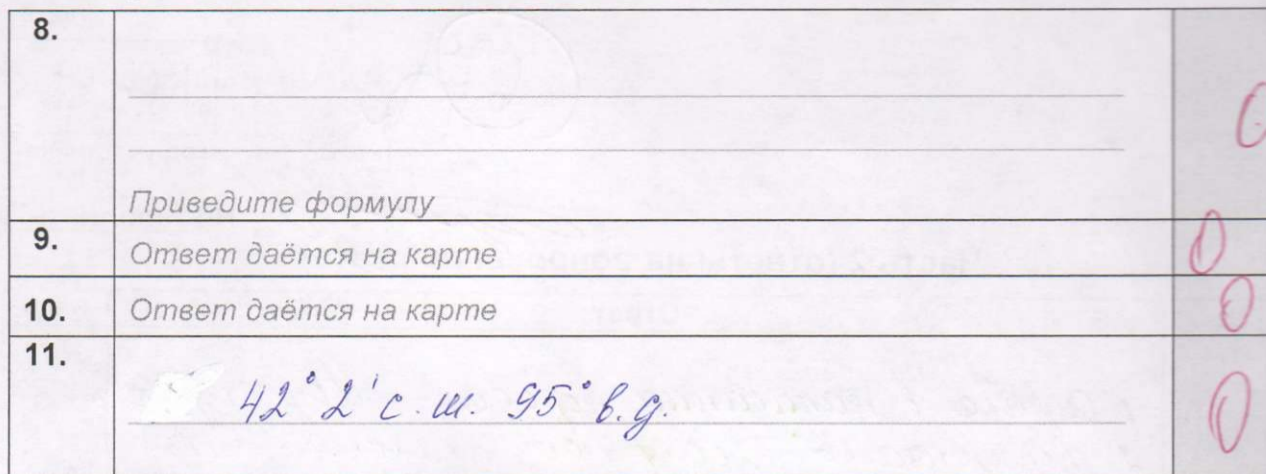 8.
0
Приведите формулу
9. Ответ даётся на карте 0
10. Ответ даётся на карте 0
11.
42° 2' с.ш. 95° в.д. 0